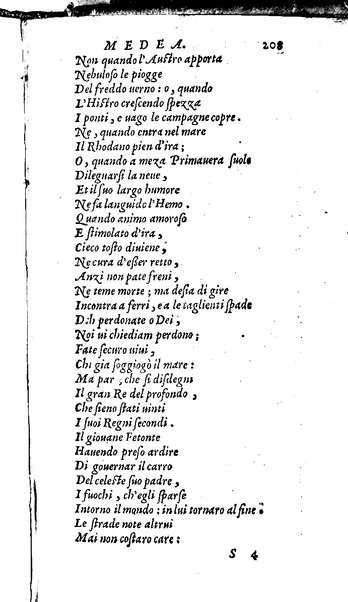 MEDEA. 208
Non quando l'Austro apporta
Nebuloso le piogge
Del freddo uerno: o, quando
L'Histro crescendo spezza
I ponti, e uago le campagne copre.
Ne, quando entra nel mare
Il Rhodano pien d'ira;
O, quando a meza Primauera suole
Dileguarsi la neue,
Et il suo largo humore
Ne fa languido l'Hemo.
Quando animo amoroso
E stimolato d'ira,
Cieco tosto diuiene,
Ne cura d'esser retto,
Anzi non pate freni,
Ne teme morte; ma desia di gire
Incontra a ferri, e a le taglienti spade
Deh perdonate o Dei,
Noi ui chiediam perdono;
Fate securo uiui,
Chi gia soggiogò il mare:
Ma par, che si disdegni
Il gran Re del profondo,
Che sieno stati uinti
I suoi Regni secondi.
Il giouane Fetonte
Hauendo preso ardire
Di gouernar il carro
Del celeste suo padre,
I fuochi, ch'egli sparse
Intorno il mondo: in lui tornaro al fine.
Le strade note altrui
Mai non costaro care:
S 4